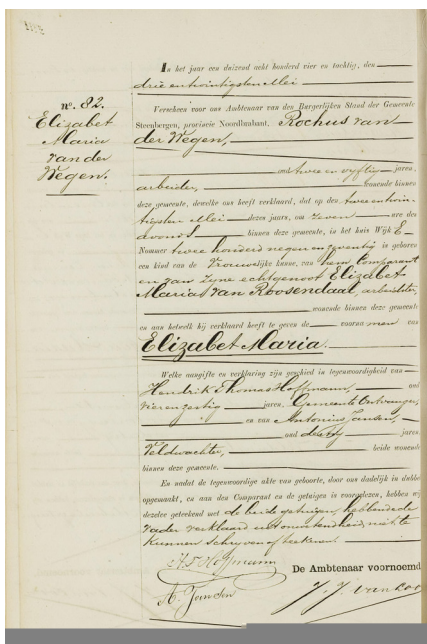 In het jaar een duizend acht honderd vier en tachtig, den
drie en twintigsten Mei
nº. 82.
Elizabet
Maria
van der
Wegen.
Verscheen voor ons Ambtenaar van den Burgerlijken Stand der Gemeente
Steenbergen, provincie Noordbrabant, Rochus van
der Wegen,
oud twee en vyftig jaren,
arbeider, wonende binnen
deze gemeente, dewelke ons heeft verklaard, dat op den twee en twin-
tigsten Mei dezes jaars, om zeven ure des
avonds binnen deze gemeente, in het huis Wijk E
Nommer twee honderd negen en zeventig is geboren
een kind van de Vrouwelijke kunne, van hem Comparant
en van zyne echtgenoot Elizabet
Maria van Roosendaal, arbeidster,
wonende binnen deze gemeente
en aan hetwelk hij verklaard heeft te geven de voorna men van
Elizabet Maria.
Welke aangifte en verklaring zijn geschied in tegenwoordigheid van
Hendrik Thomas Hoffmann, oud
vier en zestig jaren, Gemeente Ontvanger,
en van Antonius Jansen,
oud dertig jaren
Veldwachter, beide wonende
binnen deze gemeente.
En nadat de tegenwoordige akte van geboorte, door ons dadelijk in dubbel
opgemaakt, en aan den Comparant en de getuigen is voorgelezen, hebben wij
dezelve geteekend met de beide getuigen, hebbende de
vader verklaard uit onwetendheid niet te
kunnen schryven of teekenen.
H T Hoffmann
De Ambtenaar voornoemd
A. Jansen
J. J. van